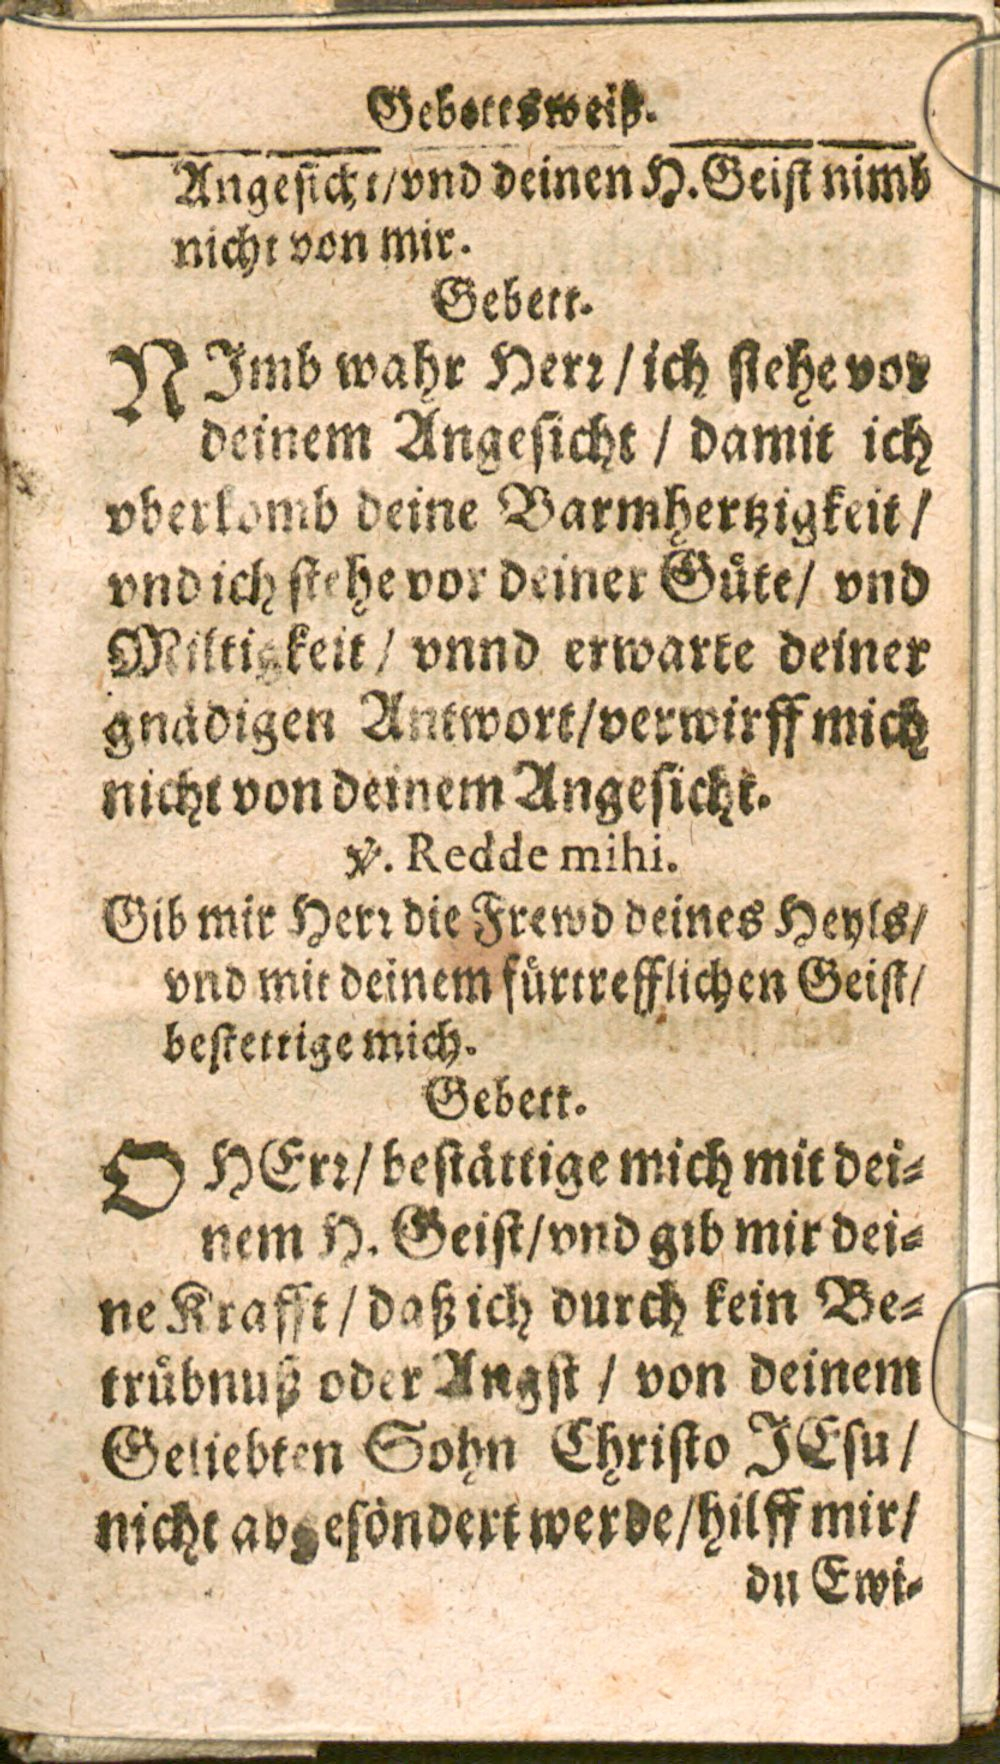 Gebettsweiß.
Angesicht/vnd deinen H. Geist nimb
nicht von mir.
Gebett.
NImb wahr Herr / ich stehe vor
deinem Angesicht / damit ich
vberkomb deine Barmhertzigkeit /
vnd ich stehe vor deiner Gůte/ vnd
Miltigkeit / vnnd erwarte deiner
gnädigen Antwort/verwirff mich
nicht von deinem Angesicht.
℣. Redde mihi.
Gib mir Herr die Frewd deines Heyls/
vnd mit deinem fůrtrefflichen Geist/
bestettige mich.
Gebett.
O HErr/ bestättige mich mit dei-
nem H. Geist/vnd gib mir dei-
ne Krafft / daß ich durch kein Be-
trůbnuß oder Angst / von deinem
Geliebten Sohn Christo JEsu /
nicht abgesöndert werde/hilff mir/
du Ewi-